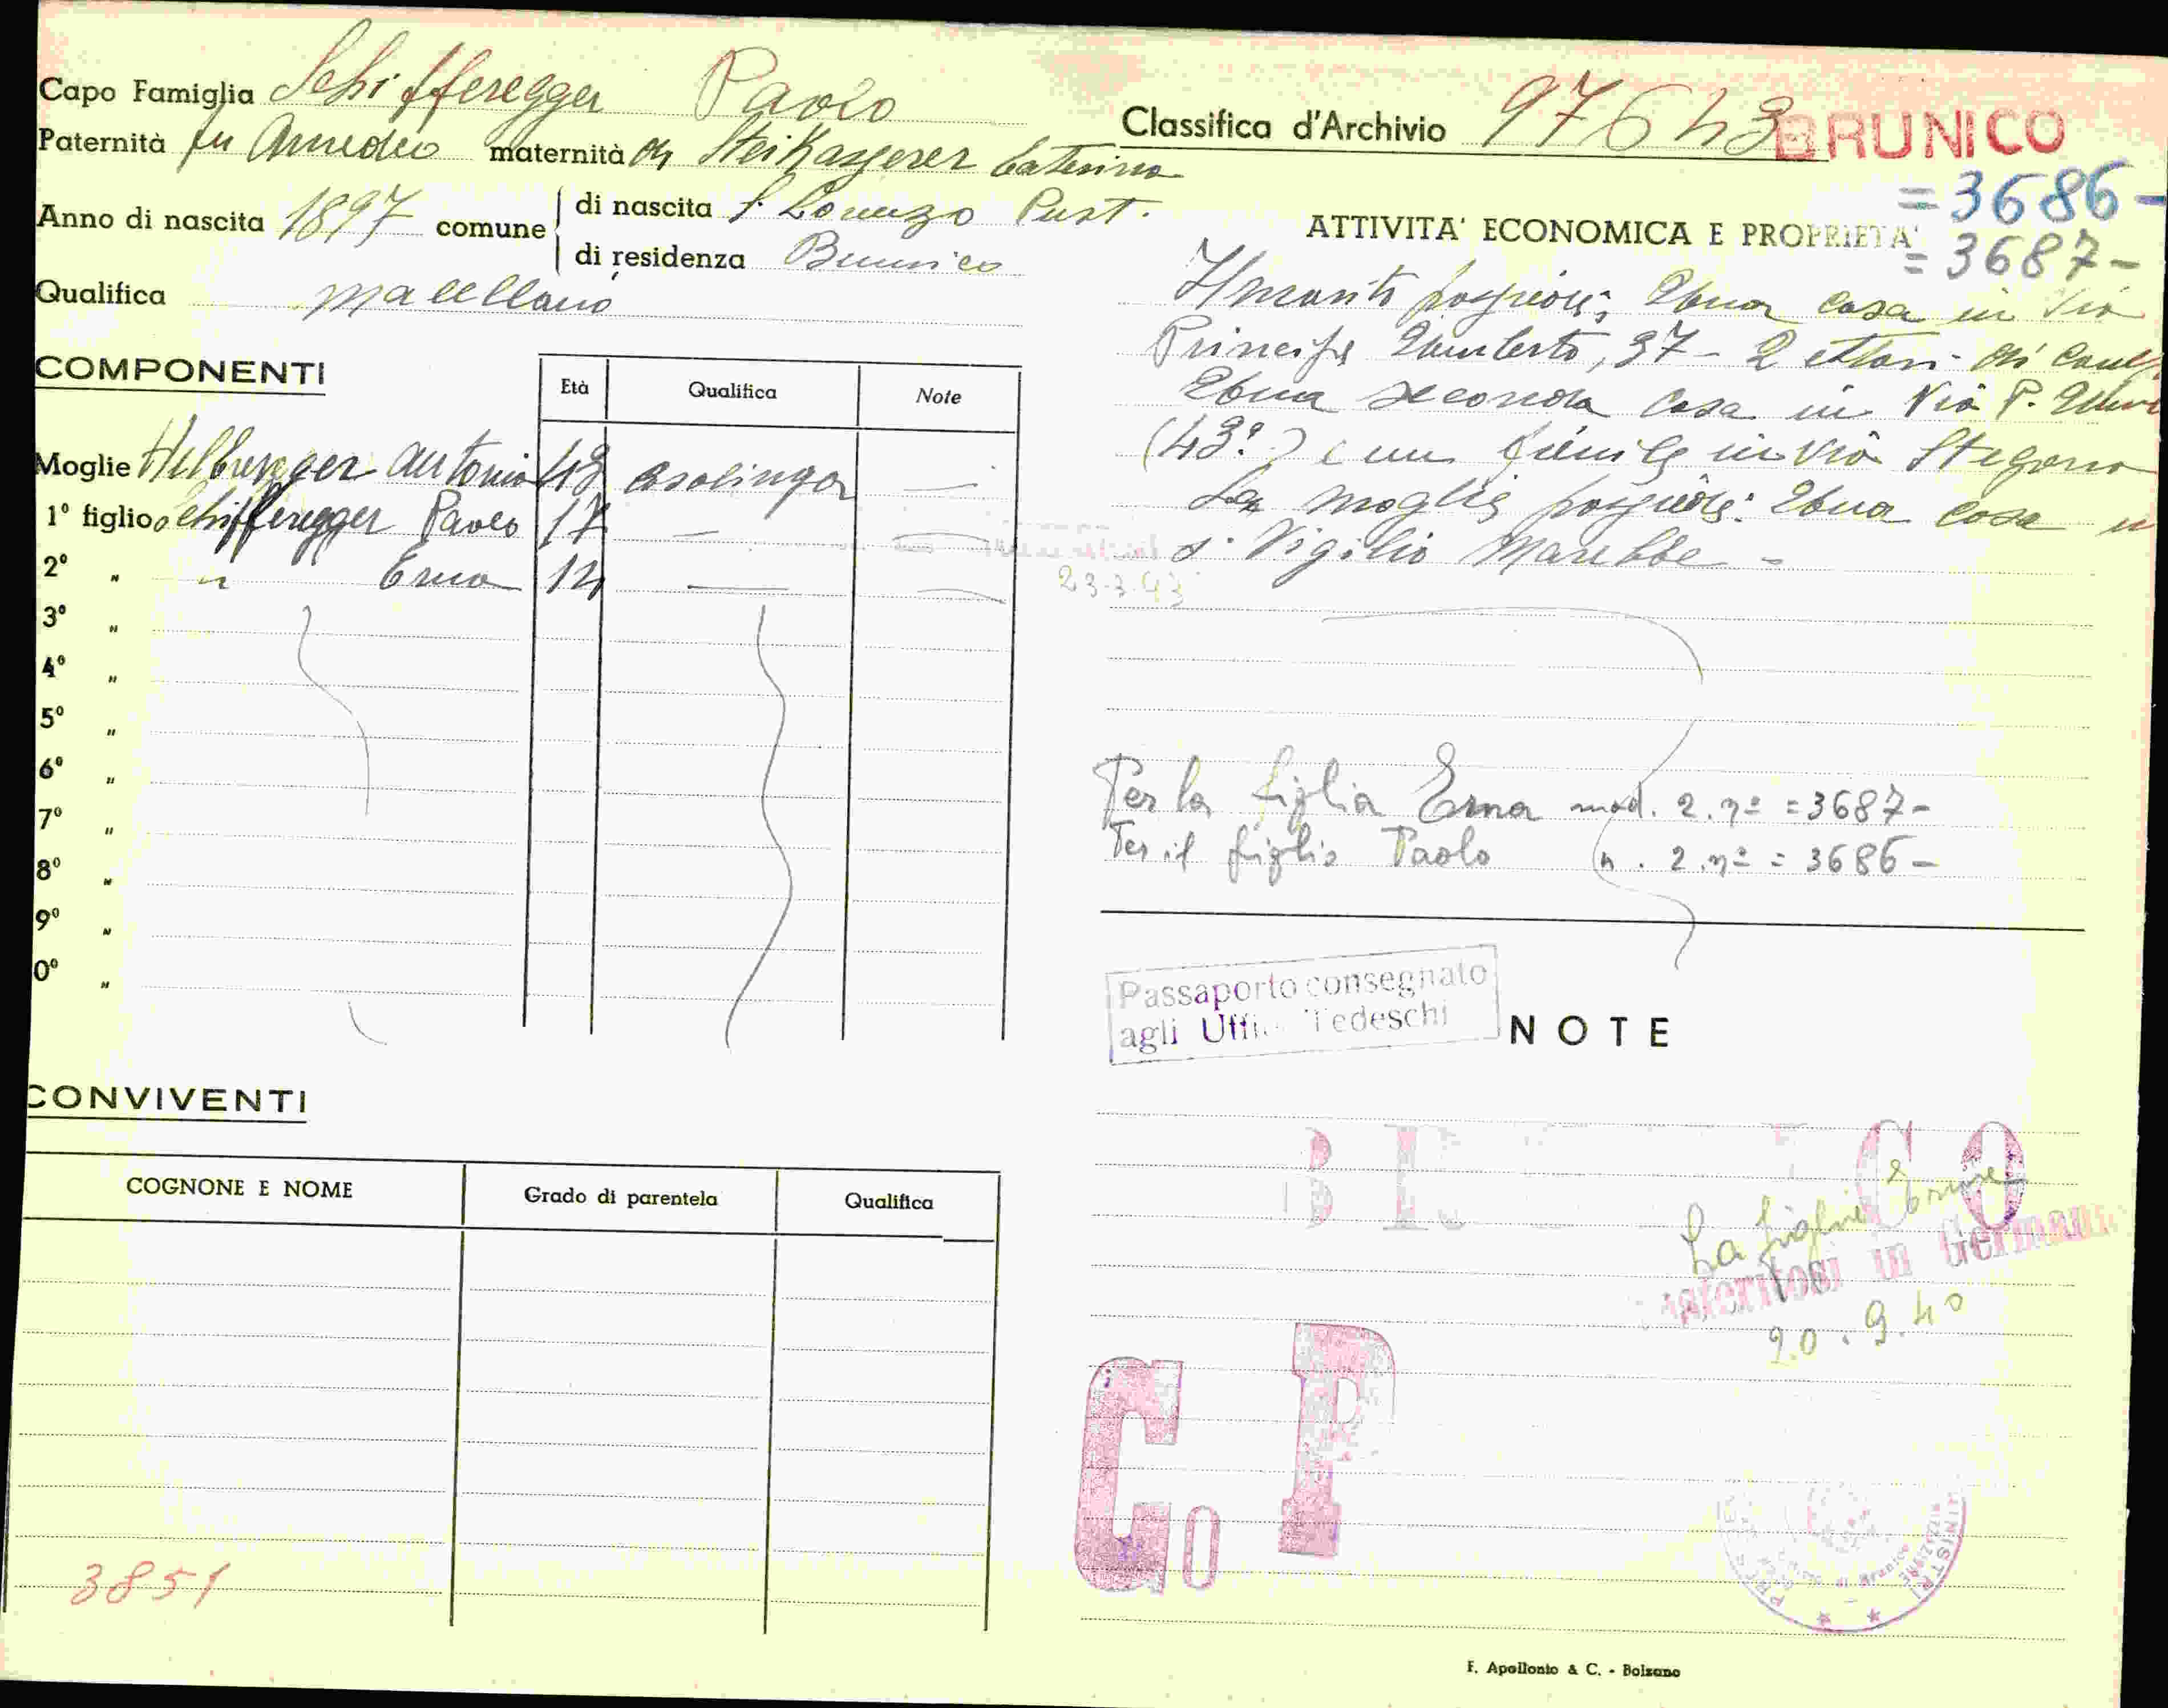 Capo Famiglia Schifferegger Paolo
Paternità fu Amedeo maternità di Steikasserer Caterina
Anno di nascita 1897 comune di nascita S. Lorenzo Pust.
di residenza Brunico
Qualifica macellaio
COMPONENTI
Età Qualifica Note
Moglie Antonia 43 casalinga —
1° figlio Schifferegger Paolo 17 —
2° " " Erna 14 —
3° "
4° "
5° "
6° "
7° "
8° "
9° "
0° "
CONVIVENTI
COGNONE E NOME Grado di parentela Qualifica
3851
Classifica d'Archivio 97643 BRUNICO
=3686-
ATTIVITA' ECONOMICA E PROPRIETA'
=3687-
Il marito possiede: 1) una casa in Via
Principe Umberto, 37 - 2 ettari di
2) una seconda casa in Via P.
(43?) e un fienile in Via Stegona
La moglie possiede: 1) una casa
S. Vigilio Marebbe -
23-3-43
Per la figlia Erna mod. 2. nº =3687-
Per il figlio Paolo m. 2. nº = 3686-
Passaporto consegnato
agli Uffici Tedeschi
NOTE
BRUNICO
La figlia Erna
trasferitosi in Germania
20.9.40
Go P
F. Apollonio & C. - Bolzano